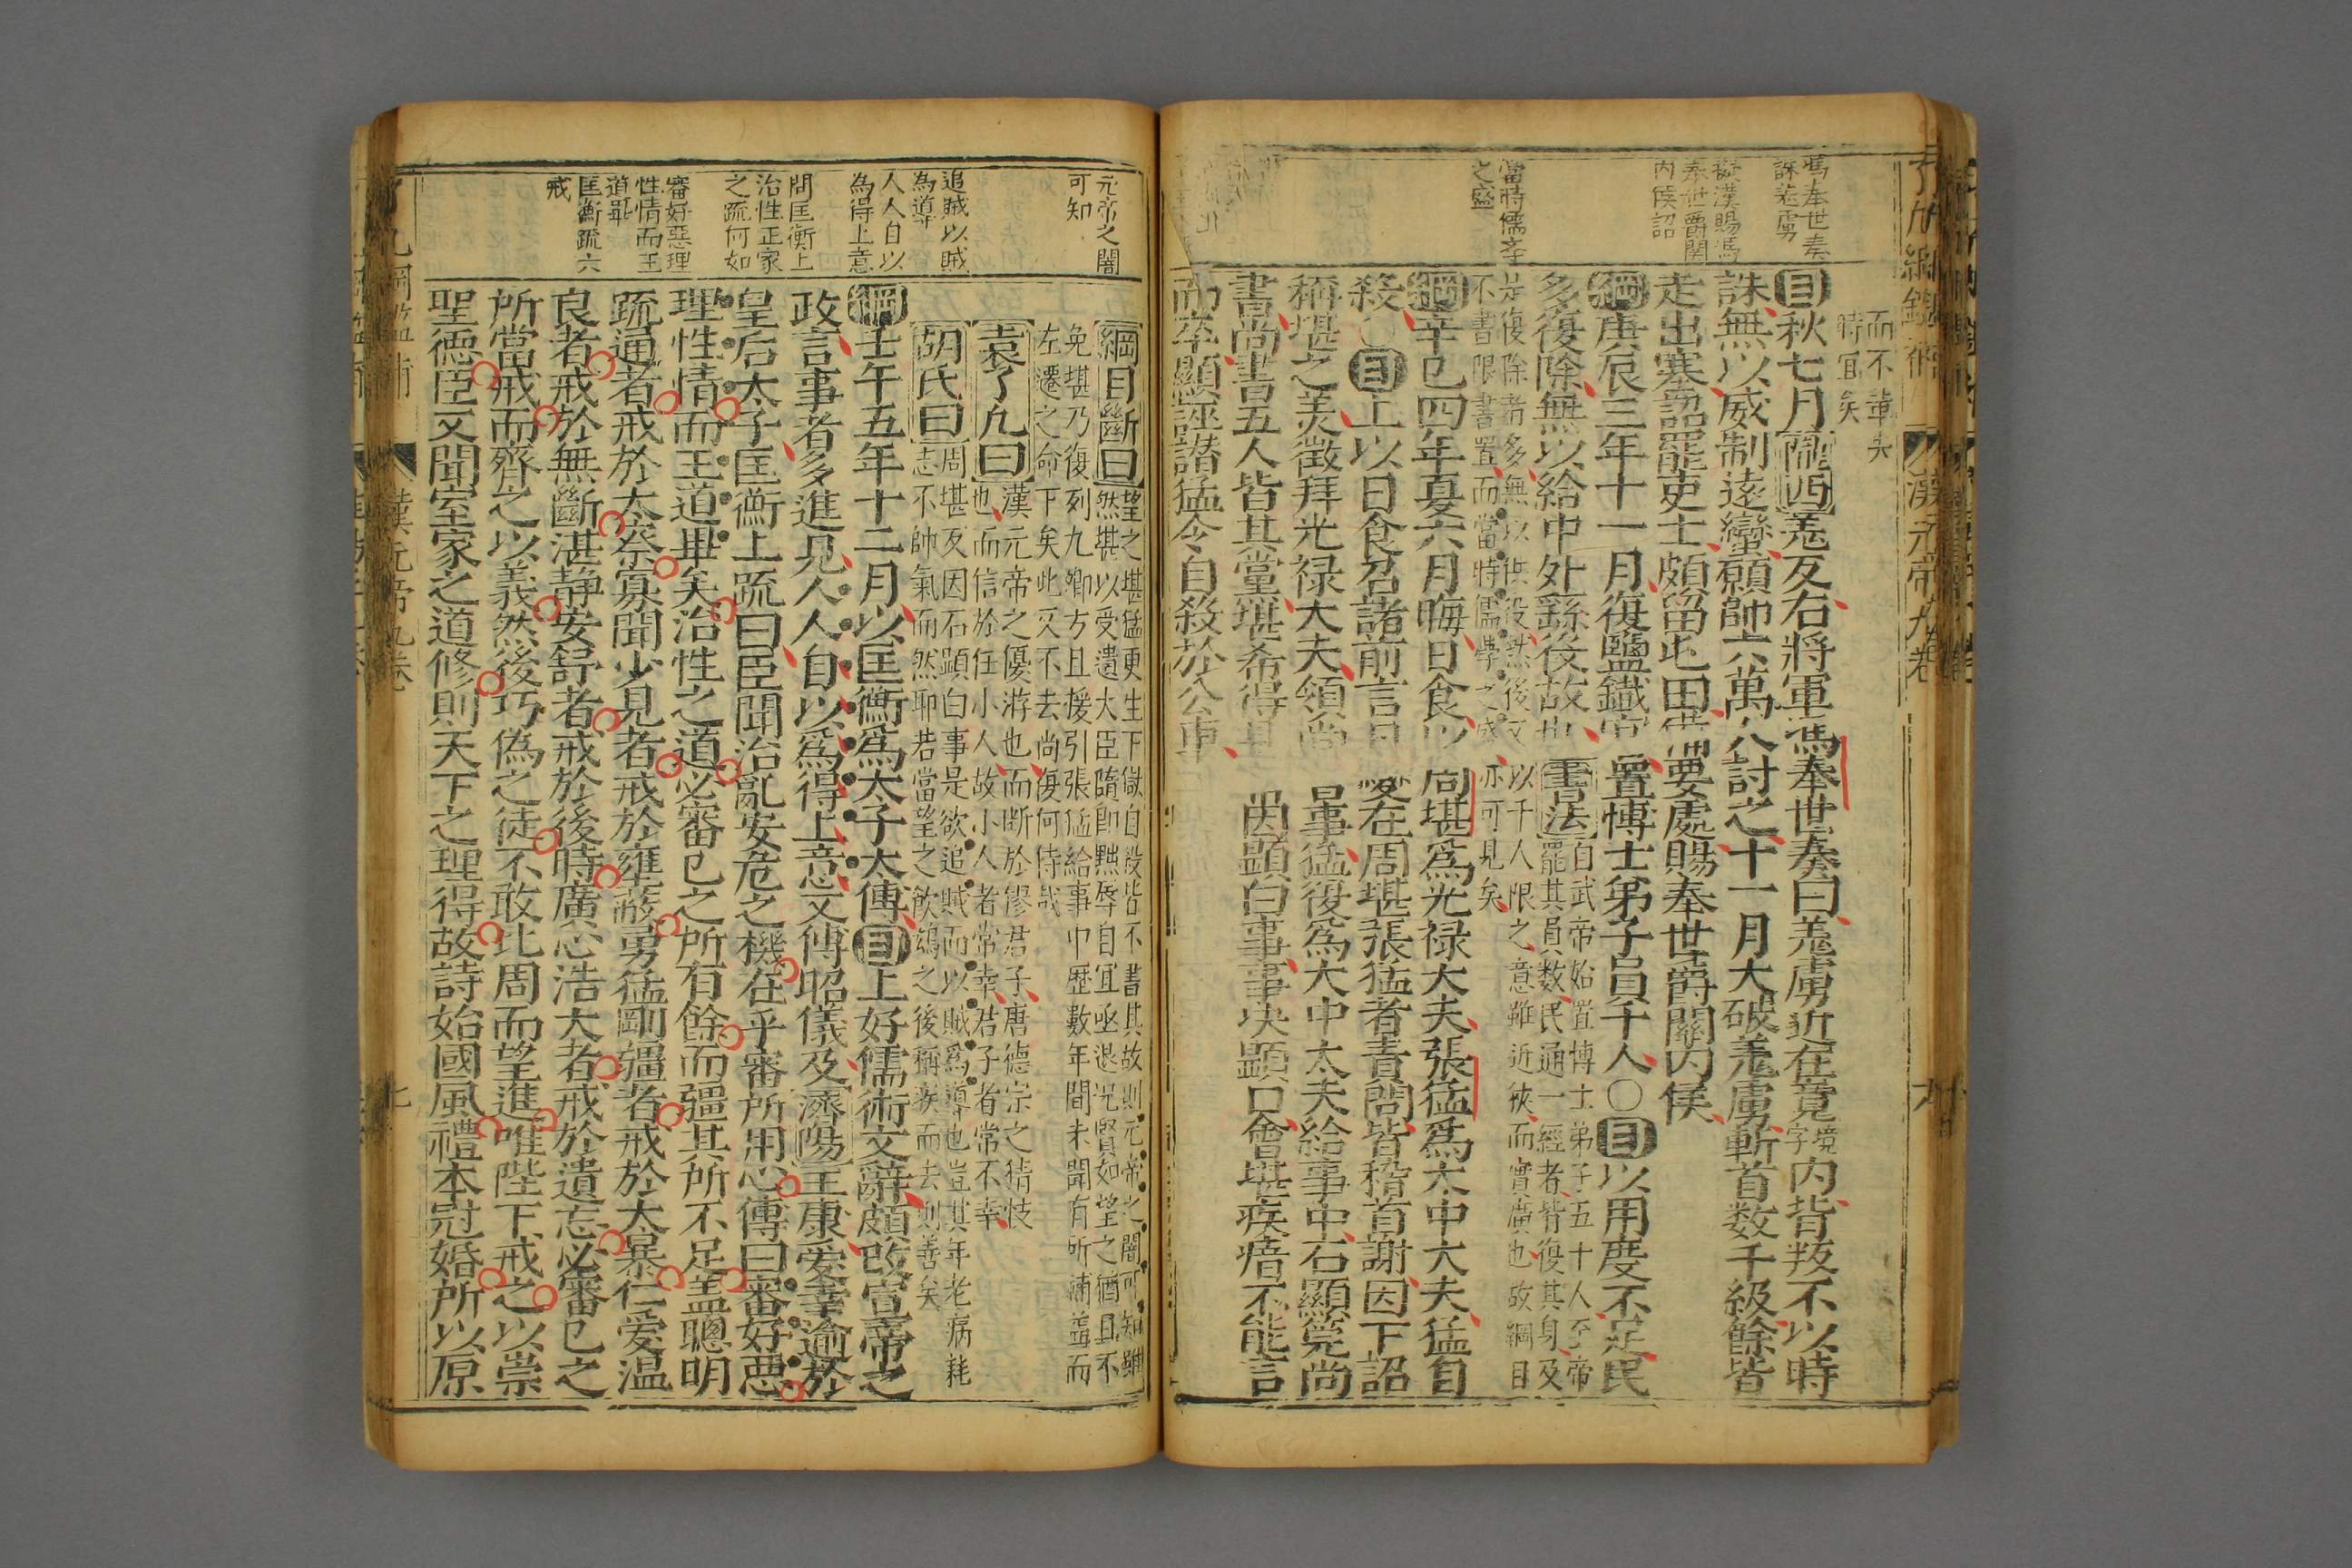 馮奉世奏
誅羌虜
擬漢賜馮
奉世爵關
內侯詔
當時儒學
之盛
而不車失
時宜矣
目秋七月隴西羌反右將軍馮奉世奏曰羌虜近在竟境字內背叛不以時
誅無以威制遠蠻願帥六萬人討之十一月大破羌虜斬首数千級餘皆
走出塞詔罷吏士頗留屯田備要處賜奉世爵關內侯
綱庚辰三年十一月復鹽鐵官置博士弟子員千人〇目以用度不足民
多復除無以給中外繇役故也
書法自武帝始置博士弟子五十人至帝
罷其員数民通一經者皆復其身及
是復除者多無以供役然後又以千人限之意雖近狹而實廣也故綱目
不書限書置而當時儒學之盛亦可見矣
綱辛巳四年夏六月晦日食以周堪爲光禄大夫張猛爲太中大夫猛自
殺〇目上以日食召諸前言日變在周堪張猛者責問皆稽首謝因下詔
稱堪之美徵拜光禄大夫領尚書事猛復爲大中太夫給事中石顯筦尚
書尚書五人皆其黨堪希得見因顯白事事决顯口會堪疾瘖不能言
而卒顯誣譖猛令自殺於公車
元帝之闇
可知
追賊以賊
為導
人人自以
為得上意
問匡衡上
治性正家
之疏何如
審好惡理
性情而王
道畢
匡衡疏六
戒
綱目斷曰望之堪猛更生下獄自殺皆不書其故則元帝之闇可知雖
然堪以受遺大臣隋卽黜辱自宜亟退况賢如望之猶且不
免堪乃復列九卿方且援引張猛給事中歷數年間未聞有所補益而
左遷之命下矣此又不去尚復何待哉
袁了凡曰漢元帝之優游也而断於繆君子唐德宗之猜忮
也而信於任小人故小人者常幸君子者常不幸
胡氏曰周堪反因石顕白事是欲追賊而以賊爲導也豈其年老病耗
志不帥氣而然耶若當望之飲鴆之後稱疾而去則善矣
綱壬午五年十二月以匡衡爲太子太傅目上好儒術文辭頗改宣帝之
政言事者多進見人人自以爲得上意又傅昭儀及濟陽王康愛幸逾於
皇后太子匡衡上疏曰臣聞治亂安危之機在乎審所用心傳曰審好惡
理性情而王道畢矣治性之道必審已之所有餘而彊其所不足盖聰明
疏通者戒於太察寡聞少見者戒於壅蔽勇猛剛彊者戒於太暴仁愛温
良者戒於無斷湛靜安舒者戒於後時廣心浩大者戒於遺忘必審已之
所當戒而齊之以義然後巧偽之徒不敢比周而望進唯陛下戒之以崇
聖德臣又聞室家之道修則天下之理得故詩始國風禮本冠婚所以原